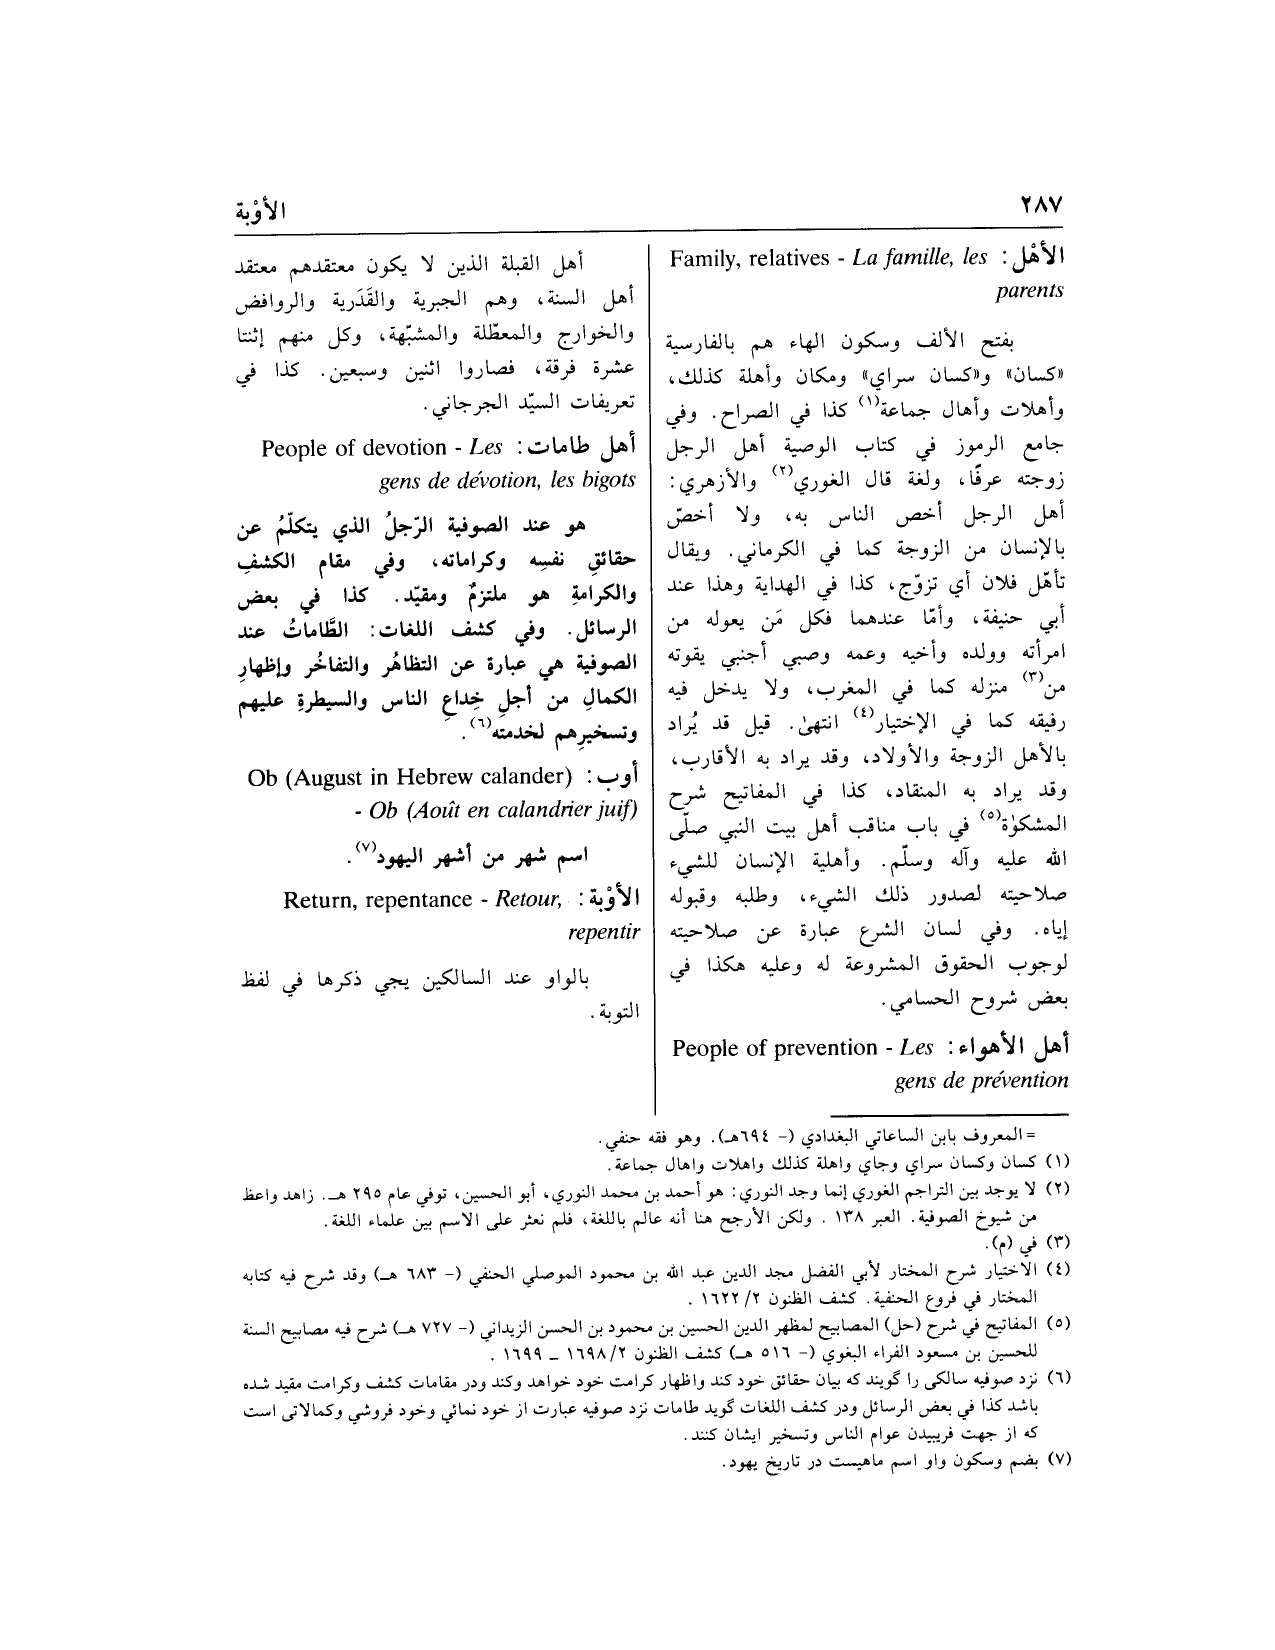 ٢٨٧
الأوْبة
الأهْل: Family, relatives - La famille, les
parents
بفتح الألف وسكون الهاء هم بالفارسية
«كسان» و«كسان سراي» ومكان وأهلة كذلك،
وأهلات وأهال جماعة(١) كذا في الصراح. وفي
جامع الرموز في كتاب الوصية أهل الرجل
زوجته عرفًا، ولغة قال الغوري(٢) والأزهري:
أهل الرجل أخص الناس به، ولا أخصّ
بالإنسان من الزوجة كما في الكرماني. ويقال
تأهّل فلان أي تزوّج، كذا في الهداية وهذا عند
أبي حنيفة، وأمّا عندهما فكل مَن يعوله من
امرأته وولده وأخيه وعمه وصبي أجنبي يقوته
من(٣) منزله كما في المغرب، ولا يدخل فيه
رفيقه كما في الإختيار(٤) انتهىٰ. قيل قد يُراد
بالأهل الزوجة والأولاد، وقد يراد به الأقارب،
وقد يراد به المنقاد، كذا في المفاتيح شرح
المشكوٰة(٥) في باب مناقب أهل بيت النبي صلّى
الله عليه وآله وسلّم. وأهلية الإنسان للشيء
صلاحيته لصدور ذلك الشيء، وطلبه وقبوله
إياه. وفي لسان الشرع عبارة عن صلاحيته
لوجوب الحقوق المشروعة له وعليه هكذا في
بعض شروح الحسامي.
أهل الأهواء: People of prevention - Les
gens de prévention
أهل القبلة الذين لا يكون معتقدهم معتقد
أهل السنة، وهم الجبرية والقَدَرية والروافض
والخوارج والمعطّلة والمشبّهة، وكل منهم إثنتا
عشرة فرقة، فصاروا اثنين وسبعين. كذا في
تعريفات السيّد الجرجاني.
أهل طامات: People of devotion - Les
gens de dévotion, les bigots
هو عند الصوفية الرّجلُ الذي يتكلّمُ عن
حقائقِ نفسِه وكراماته، وفي مقام الكشفِ
والكرامةِ هو ملتزمٌ ومقيّد. كذا في بعض
الرسائل. وفي كشف اللغات: الطَّاماتُ عند
الصوفية هي عبارة عن التظاهُر والتفاخُر وإظهارِ
الكمالِ من أجلِ خِداعِ الناس والسيطرةِ عليهم
وتسخيرِهم لخدمته(٦).
أوب: Ob (August in Hebrew calander)
- Ob (Août en calandrier juif)
اسم شهر من أشهر اليهود(٧).
الأوْبة: Return, repentance - Retour,
repentir
بالواو عند السالكين يجي ذكرها في لفظ
التوبة.
= المعروف بابن الساعاتي البغدادي (- ٦٩٤هـ). وهو فقه حنفي.
(١) كسان وكسان سراي وجاي واهلة كذلك واهلات واهال جماعة.
(٢) لا يوجد بين التراجم الغوري إنما وجد النوري: هو أحمد بن محمد النوري، أبو الحسين، توفي عام ٢٩٥ هـ. زاهد واعظ
من شيوخ الصوفية. العبر ١٣٨. ولكن الأرجح هنا أنه عالم باللغة، فلم نعثر على الاسم بين علماء اللغة.
(٣) في (م).
(٤) الاختيار شرح المختار لأبي الفضل مجد الدين عبد الله بن محمود الموصلي الحنفي (- ٦٨٣ هـ) وقد شرح فيه كتابه
المختار في فروع الحنفية. كشف الظنون ٢/ ١٦٢٢.
(٥) المفاتيح في شرح (حل) المصابيح لمظهر الدين الحسين بن محمود بن الحسن الزيداني (- ٧٢٧ هـ) شرح فيه مصابيح السنة
للحسين بن مسعود الفراء البغوي (- ٥١٦ هـ) كشف الظنون ٢/ ١٦٩٨ ـ ١٦٩٩.
(٦) نزد صوفيه سالكى را گويند كه بيان حقائق خود كند واظهار كرامت خود خواهد وكند ودر مقامات كشف وكرامت مقيد شده
باشد كذا في بعض الرسائل ودر كشف اللغات گويد طامات نزد صوفيه عبارت از خود نمائي وخود فروشي وكمالاتى است
كه از جهت فريبيدن عوام الناس وتسخير ايشان كنند.
(٧) بضم وسكون واو اسم ماهيست در تاريخ يهود.